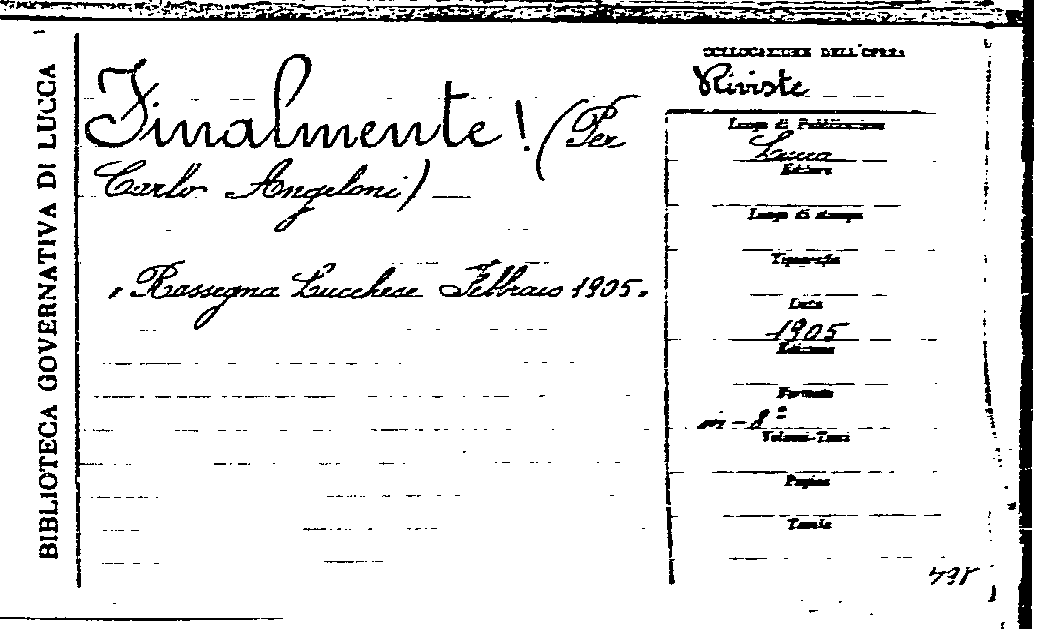 BIBLIOTECA GOVERNATIVA DI LUCCA
Finalmente! (Per
Carlo Angeloni)
"Rassegna Lucchese Febbraio 1905.
COLLOCAZIONE DELL'OPERA
Riviste
Luogo di Pubblicazione
Lucca
Editore
Luogo di stampa
Tipografia
Data
1905
Edizione
Formato
in-8º
Volumi-Tomi
Pagine
Tavole